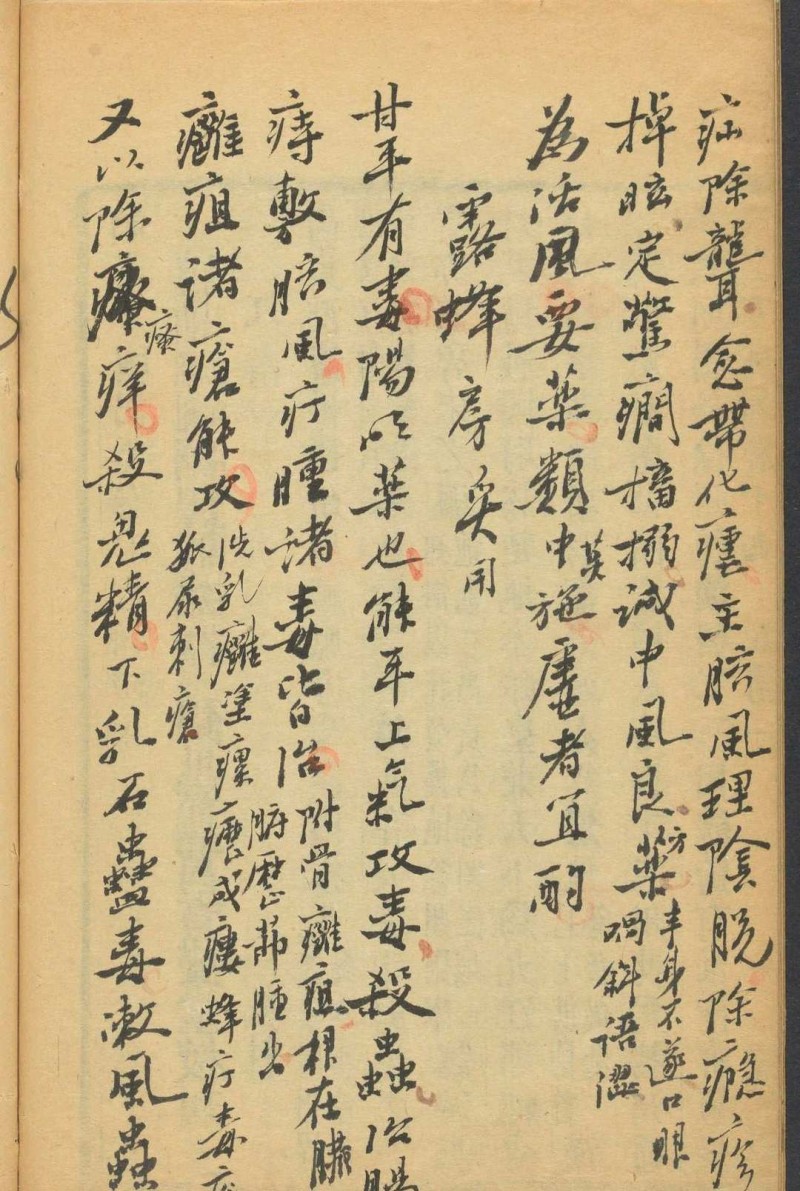 疝除聾愈帶化瘻主臍風理陰脫除癮疹
掉眩定驚癇搐搦諴中風良藥方半身不遂口眼
喎斜語澀
為活風要藥類中莫施虛者宜酌
露蜂房炙用
甘平有毒陽明藥也能平上氣攻毒殺蟲治腸
痔敷臍風疔腫諸毒皆治附骨癰疽根在臟
腑歷節腫出
癰疽諸瘡能攻洗乳癰塗瘰癧成瘻蜂疔毒
狐尿刺瘡
又以除瘙癢殺鬼精下乳石蠱毒漱風蟲